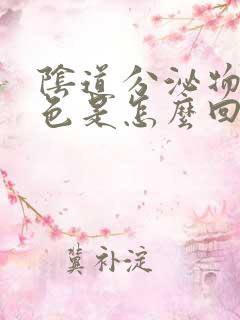 陰道分泌物
色是怎麼回
冀补淀